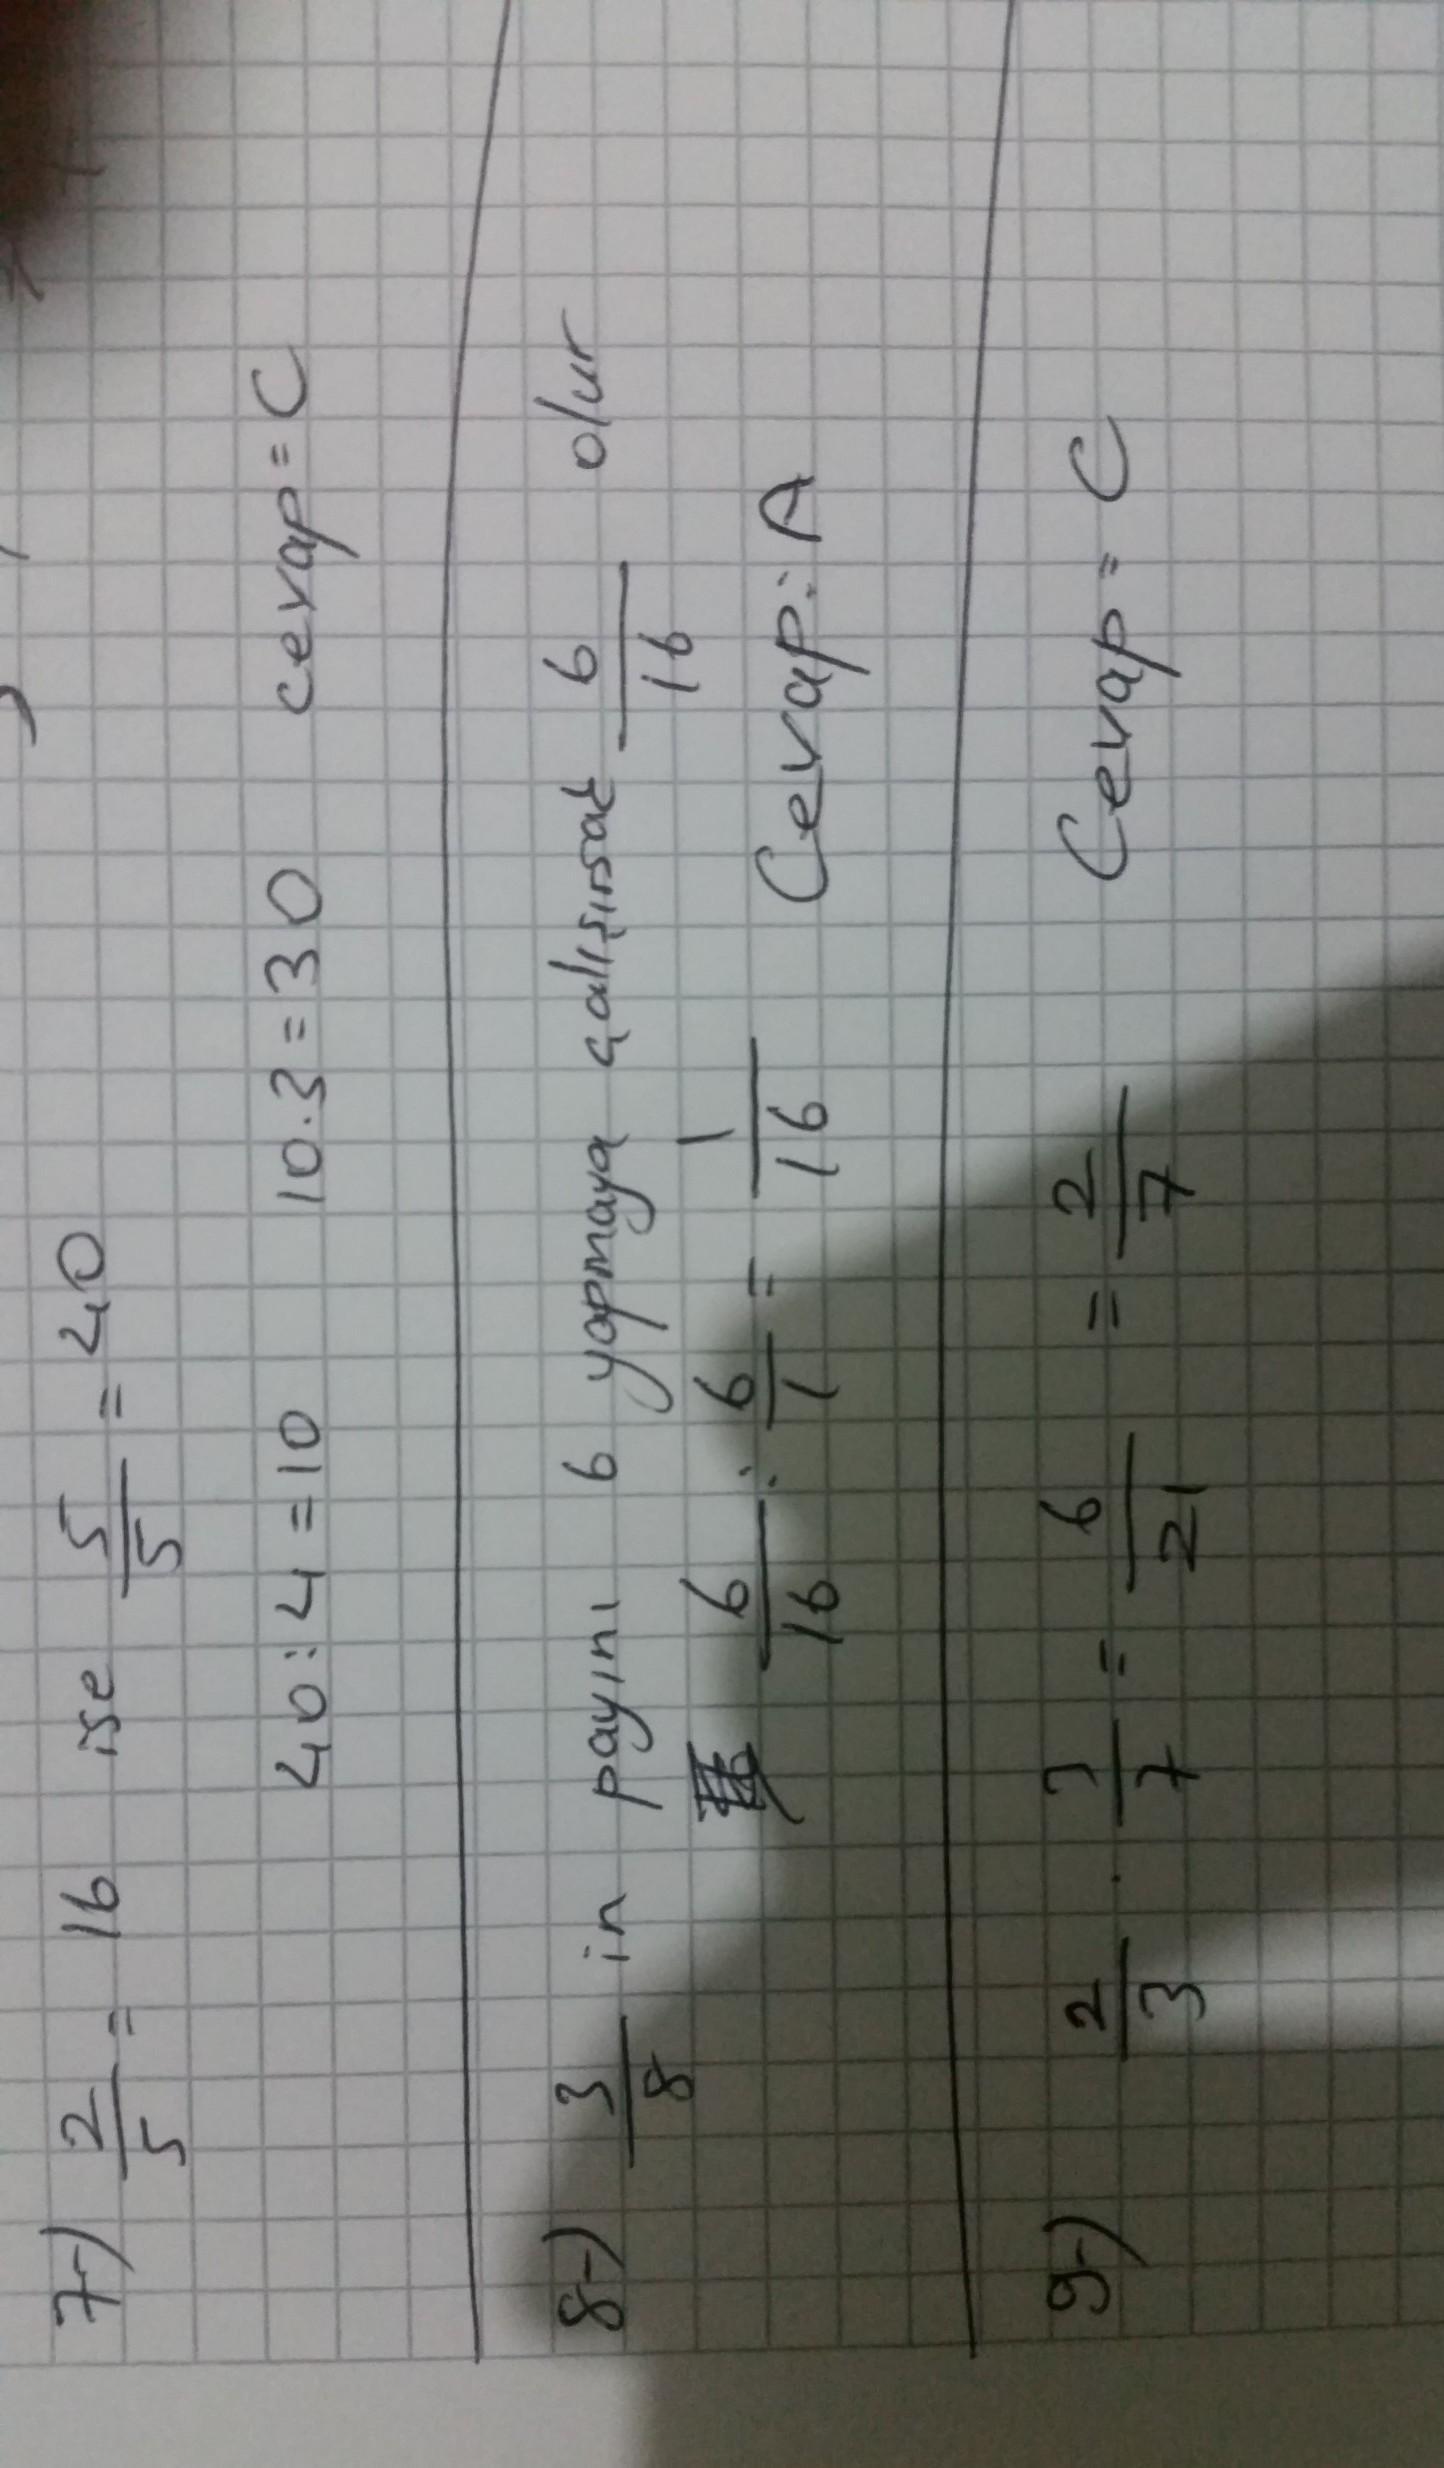 7-) 2/5 = 16 ise 5/5 = 40
40:4=10 10.3=30 cevap=C
8-) 3/8 in payını 6 yapmaya çalışırsak 6/16 olur
6/16 : 6/1 = 1/16 Cevap: A
9-) 2/3 . 3/7 = 6/21 = 2/7 Cevap = C